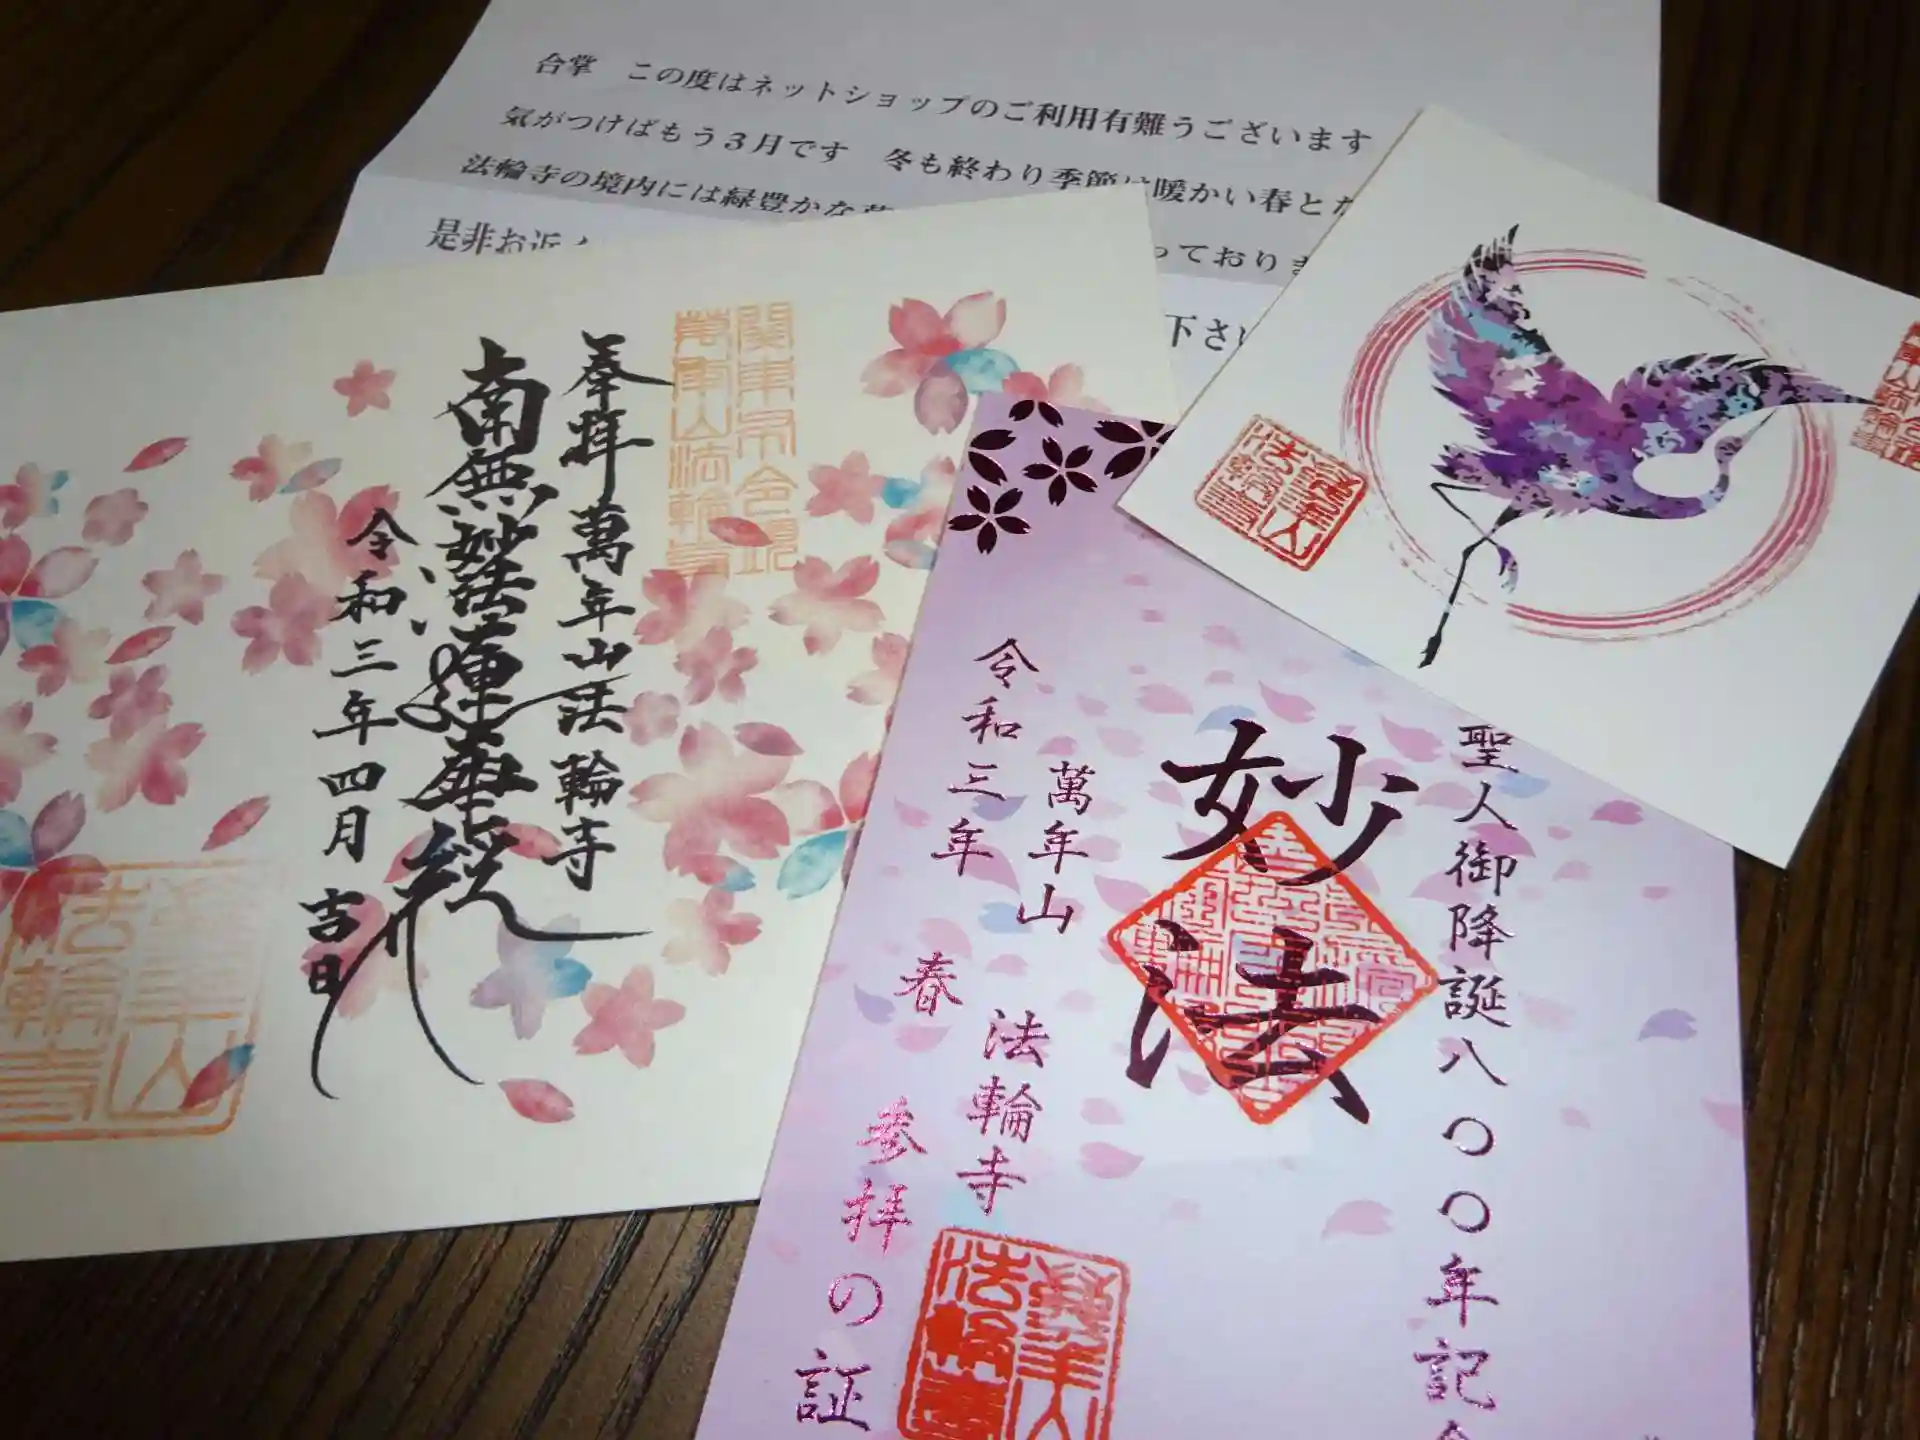 合掌　この度はネットショップのご利用有難うございます
気がつけばもう３月です　冬も終わり季節は暖かい春とな
法輪寺の境内には緑豊かな
是非お近
っておりま
下さい
奉拝　萬年山法輪寺
南無妙法蓮華経
令和三年四月吉日
萬年山法輪寺
法輪寺
萬年山
聖人御降誕八〇〇年記念
妙法
萬年山　法輪寺
令和三年　春　参拝の証
萬年山
法輪寺
萬年山
法輪寺